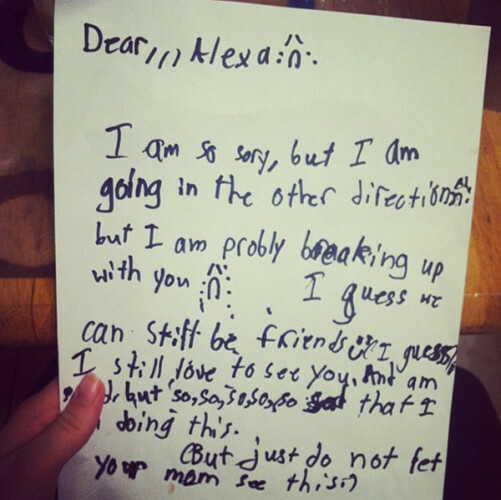 Dear,,,, Alexa :n:.
I am so sory, but I am
going in the other direction n:
but I am probly breaking up
with you :n: I guess we
can still be friends I guess,
I still love to see you. And am
but so, so, so, so, so sad that I
doing this.
(But just do not let
your mom see this:)